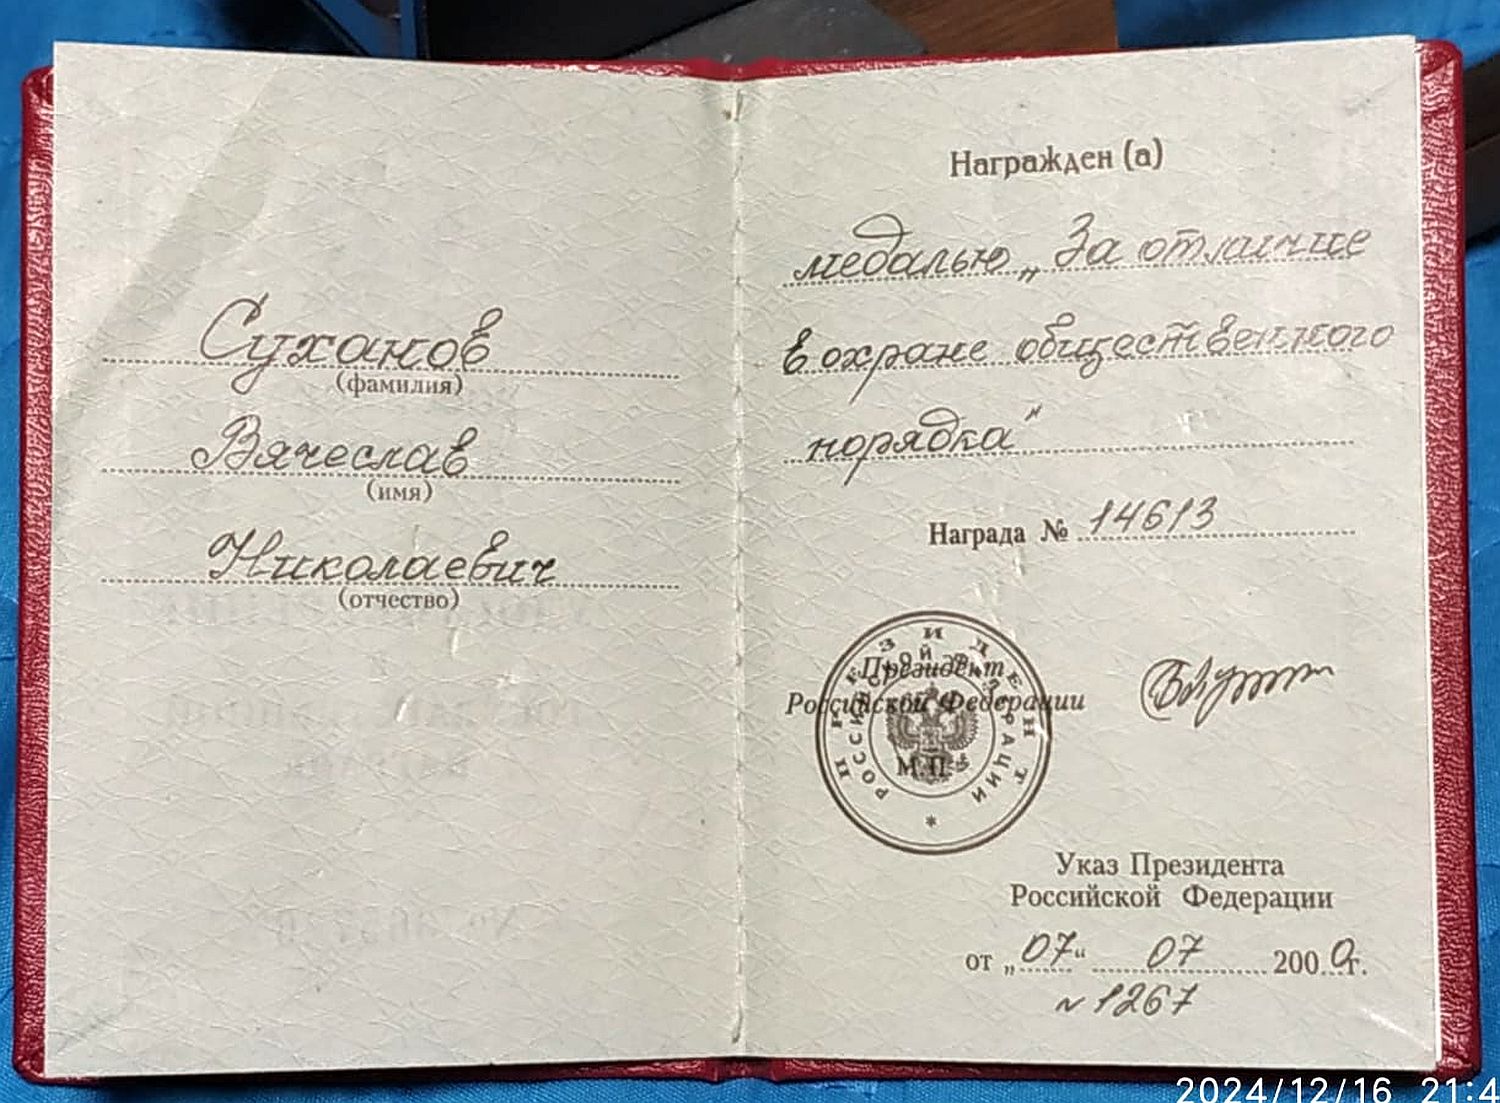 Суханов
(фамилия)
Вячеслав
(имя)
Николаевич
(отчество)
Награжден (а)
медалью „За отличие
в охране общественного
порядка"
Награда № 14613
Президент
Российской Федерации
М.П.
ПРЕЗИДЕНТ
РОССИЙСКОЙ ФЕДЕРАЦИИ
*
Указ Президента
Российской Федерации
от „07“ 07 2000г.
№ 1267
2024/12/16 21:4